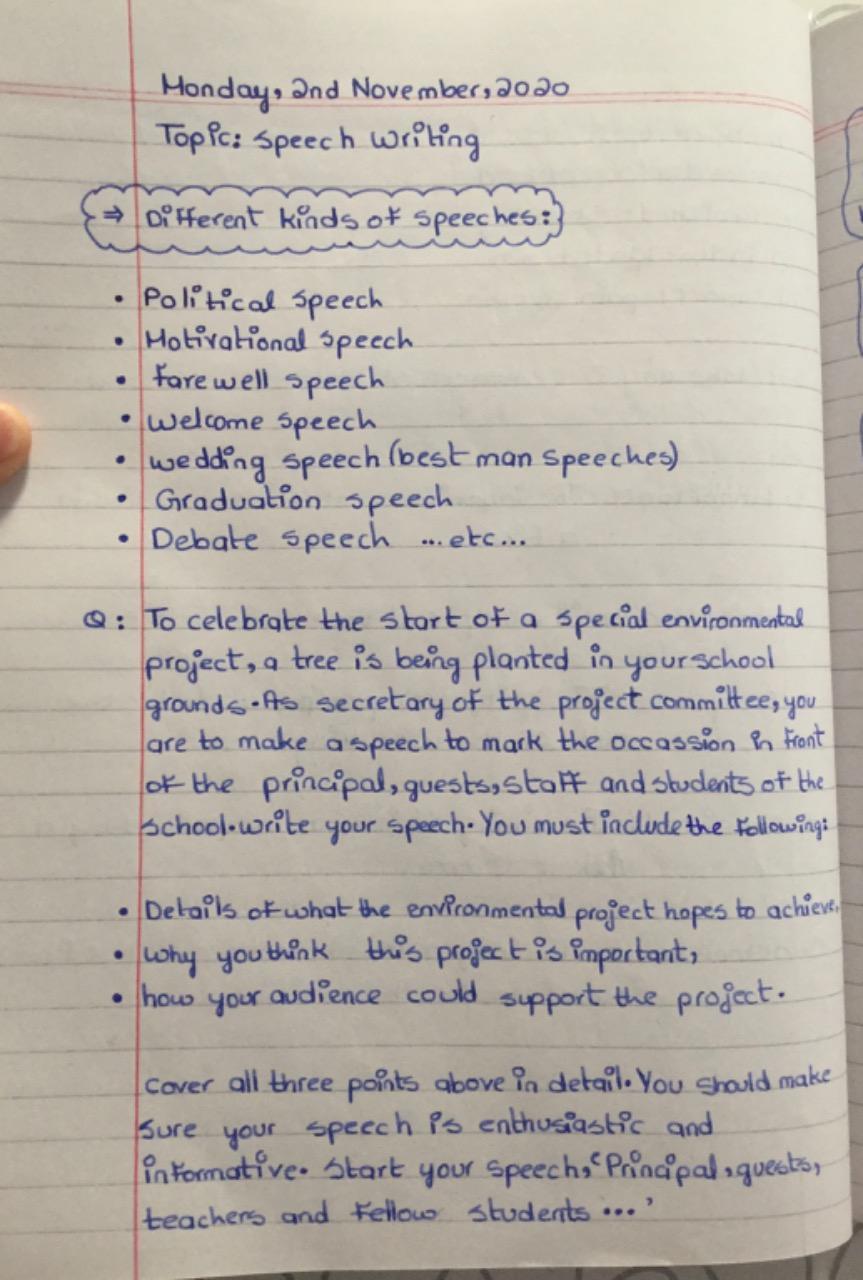 Monday, 2nd November, 2020
Topic: Speech Writing
⇒ Different kinds of speeches:
• Political speech
• Motivational speech
• farewell speech
• welcome speech
• wedding speech (best man speeches)
• Graduation speech
• Debate speech ...etc...
Q: To celebrate the start of a special environmental
project, a tree is being planted in your school
grounds. As secretary of the project committee, you
are to make a speech to mark the occassion in front
of the principal, guests, staff and students of the
school. write your speech. You must include the following:
• Details of what the environmental project hopes to achieve,
• why you think this project is important,
• how your audience could support the project.
cover all three points above in detail. You should make
sure your speech is enthusiastic and
informative. Start your speech, ‘Principal, guests,
teachers and fellow students ...’